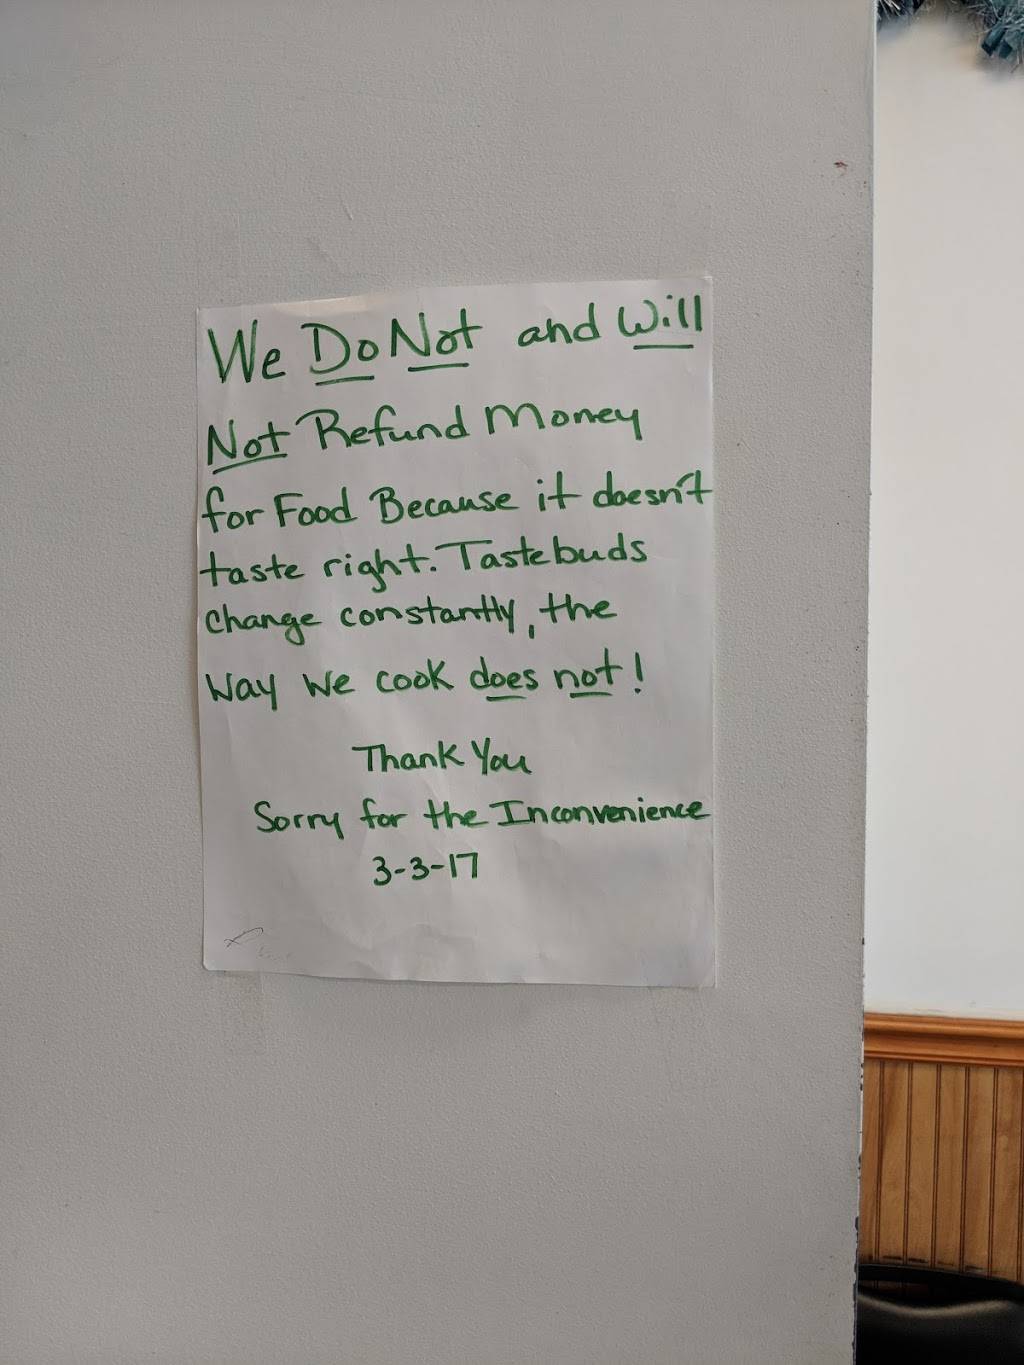 We Do Not and Will
Not Refund Money
for Food Because it doesn't
taste right. Tastebuds
change constantly, the
way we cook does not!
Thank You
Sorry for the Inconvenience
3-3-17